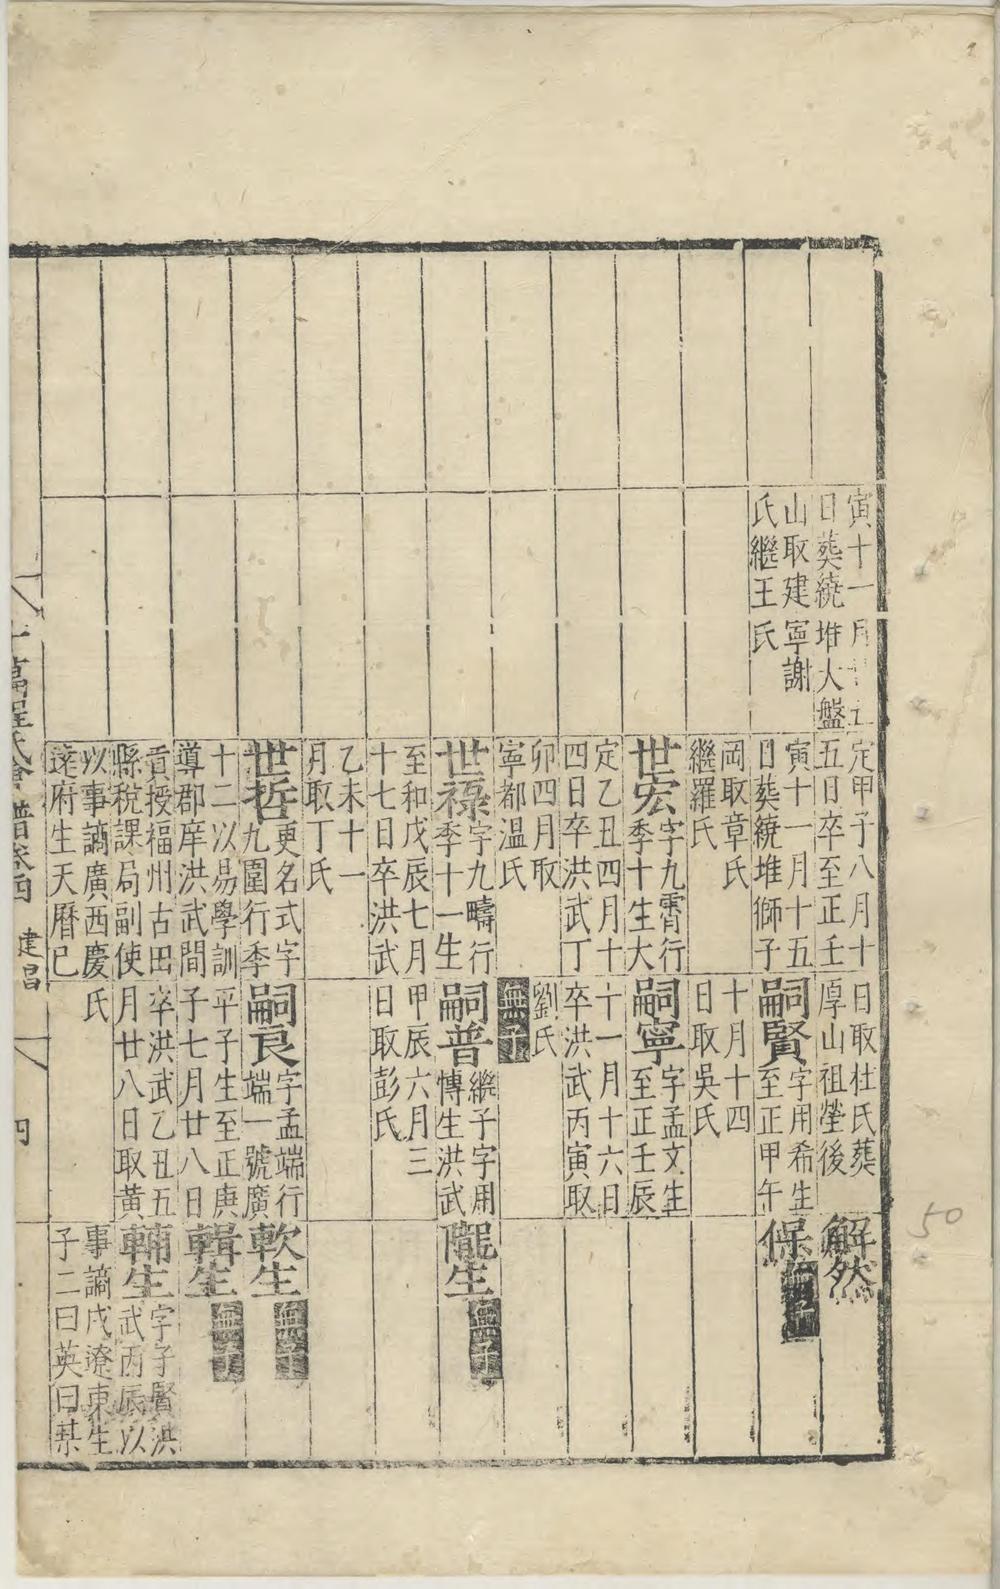 寅十一月
日葬繞堆大盤
山取建寧謝
氏繼王氏
定甲子八月十
五日卒至正壬
寅十一月十五
日葬繞堆獅子
岡取章氏
繼羅氏
世宏字九霄行
季十生大
定乙丑四月十
四日卒洪武丁
卯四月取
寧都溫氏
世祿字九疇行
季十一生
至和戊辰七月
十七日卒洪武
乙未十一
月取丁氏
世哲更名式字
九圍行季
十二以易學訓
導郡庠洪武間
貢授福州古田
縣稅課局副使
以事謫廣西慶
遠府生天曆己
日取杜氏葬
厚山祖塋後
嗣賢字用希生
至正甲午
十月十四
日取吳氏
嗣寧字孟文生
至正壬辰
十一月十六日
卒洪武丙寅取
劉氏
無子
嗣普繼子字用
博生洪武
甲辰六月三
日取彭氏
嗣良字孟端行
端一號廣
平子生至正庚
子七月廿八日
卒洪武乙丑五
月廿八日取黃
氏
解然
保無子
隴生無子
軟生無子
輯生無子
輔生字子賢洪
武丙辰以
事謫戌遼東生
子二曰英曰某
程氏會譜卷四 建昌 四
50